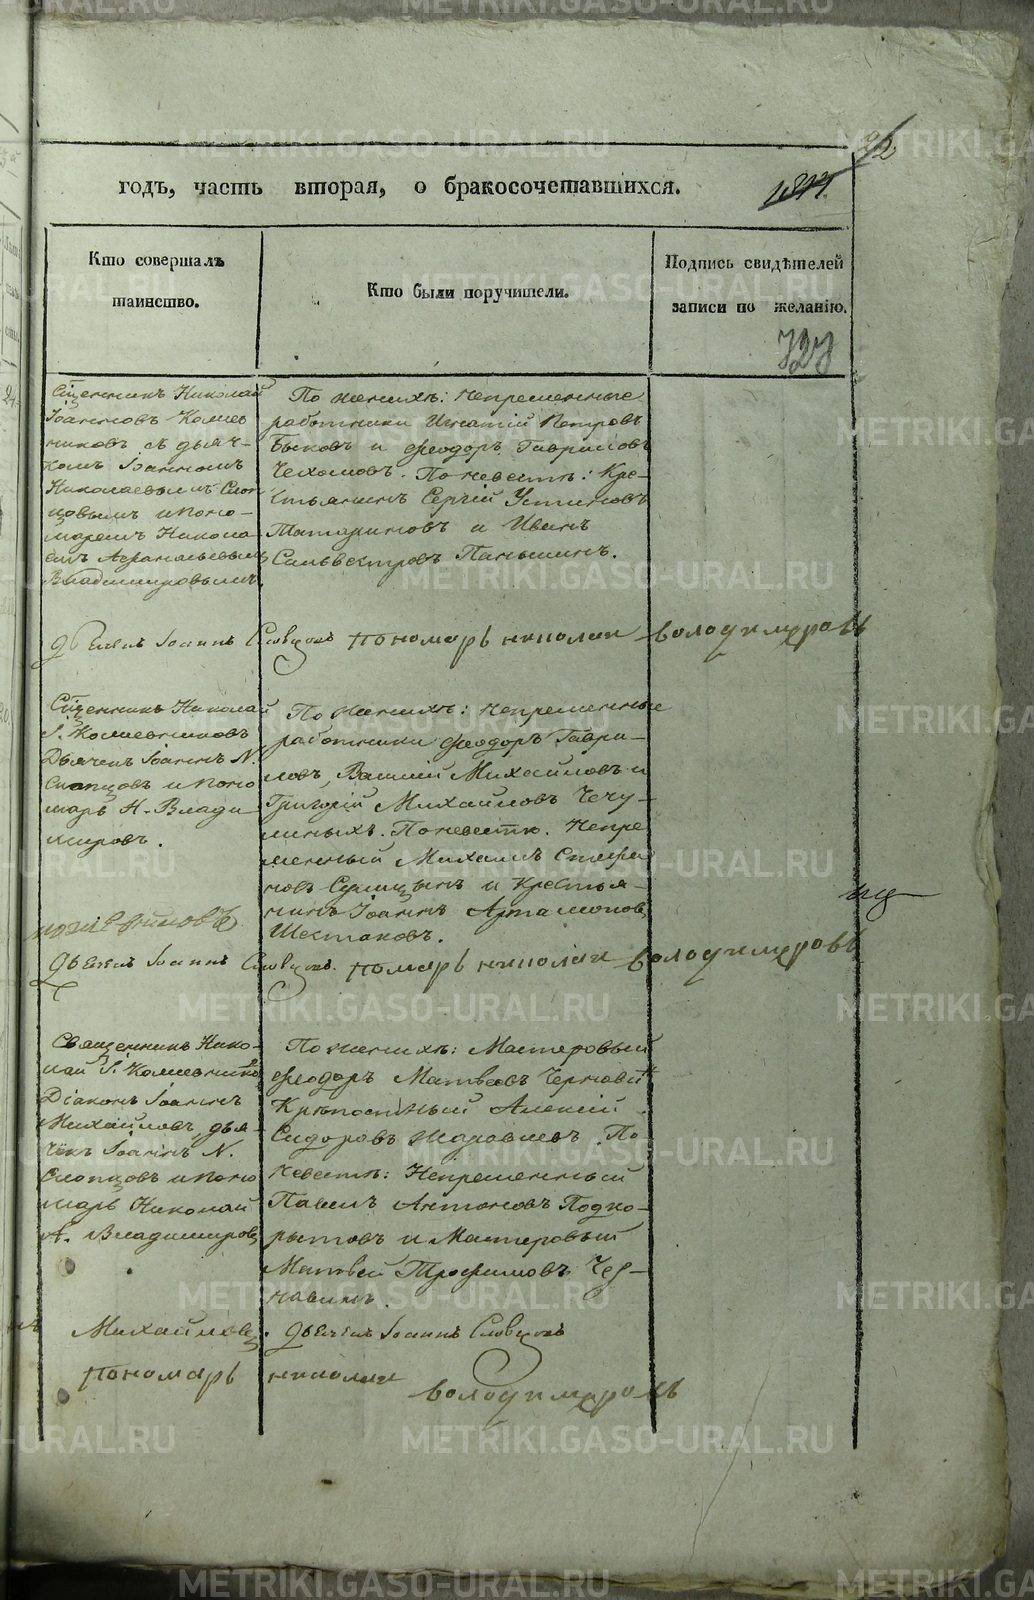 92
годъ, часть вторая, о бракосочетавшихся.
Кто совершалъ
таинство.
Кто были поручители.
Подпись свидѣтелей
записи по желанію.
727
Сщенникъ Николай
Іоанновъ
никовъ съ дьяч-
комъ Іоанномъ
Николаевымъ Слоп
цовымъ и поно-
маремъ Никола
емъ Афанасьевымъ
Владимировымъ.
По женихѣ: Непременные
работники Игнатій Петровъ
Быковъ и Феодоръ Гавриловъ
Чехомовъ. По невестѣ: Кре-
стьянинъ Сергій Устиновъ
Татариновъ и Иванъ
Сильвестровъ Паньшинъ.
Іоаннъ Словцовъ пономарь николаи володимировъ
Сщенникъ Николай
І.
Дьячекъ Іоаннъ N.
Слопцовъ и поно
марь Н. Влади
мировъ.
По женихѣ: Непременные
работники Феодоръ Гаври-
ловъ, Василій Михайловъ и
Григорій Михайловъ Чечу-
линыхъ. По невестѣ. Непре
менный Михаилъ Стефа
новъ и Крестья-
нинъ Іоаннъ Артамонов
Шестаковъ.
Іоаннъ Словцовъ. помарь николаи володимировъ
Священникъ Нико-
лай І.
Діаконъ Іоаннъ
Михайловъ, дья-
чекъ Іоаннъ N.
Слопцовъ и поно
марь Николай
А. Владимировъ
По женихѣ: Мастеровый
Феодоръ Матвеевъ
Крѣпостный Алексій
Сидоровъ Журавлевъ. По
невестѣ: Непременный
Павелъ Антоновъ Подко-
рытовъ и Мастеровый
Матвей Трофимовъ Чер-
навинъ.
Михайловъ. Іоаннъ Словцовъ
пономарь николаи
володимировъ
METRIKI.GASO-URAL.RU